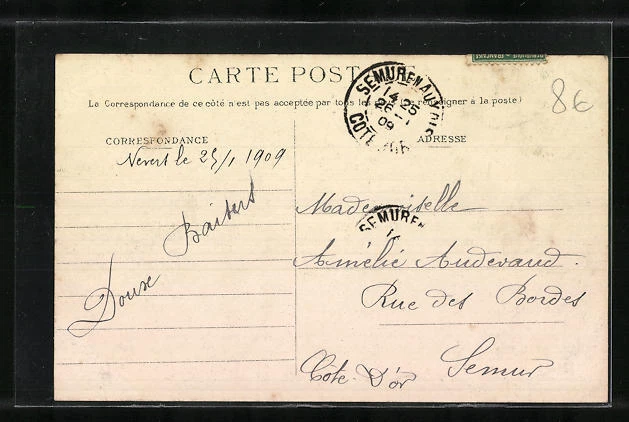 CARTE POSTALE
La Correspondance de ce côté n'est pas acceptée par tous les renseigner à la poste)
CORRESPONDANCE
ADRESSE
SEMUR EN AUXOIS
COTE D'OR
14
26-1
09
8€
Nevers le 25/1 1909
Douse Baisers
Mademoiselle
SEMUR EN
Amélie Audevaud.
Rue des Bordes
Semur
Côte d'Or